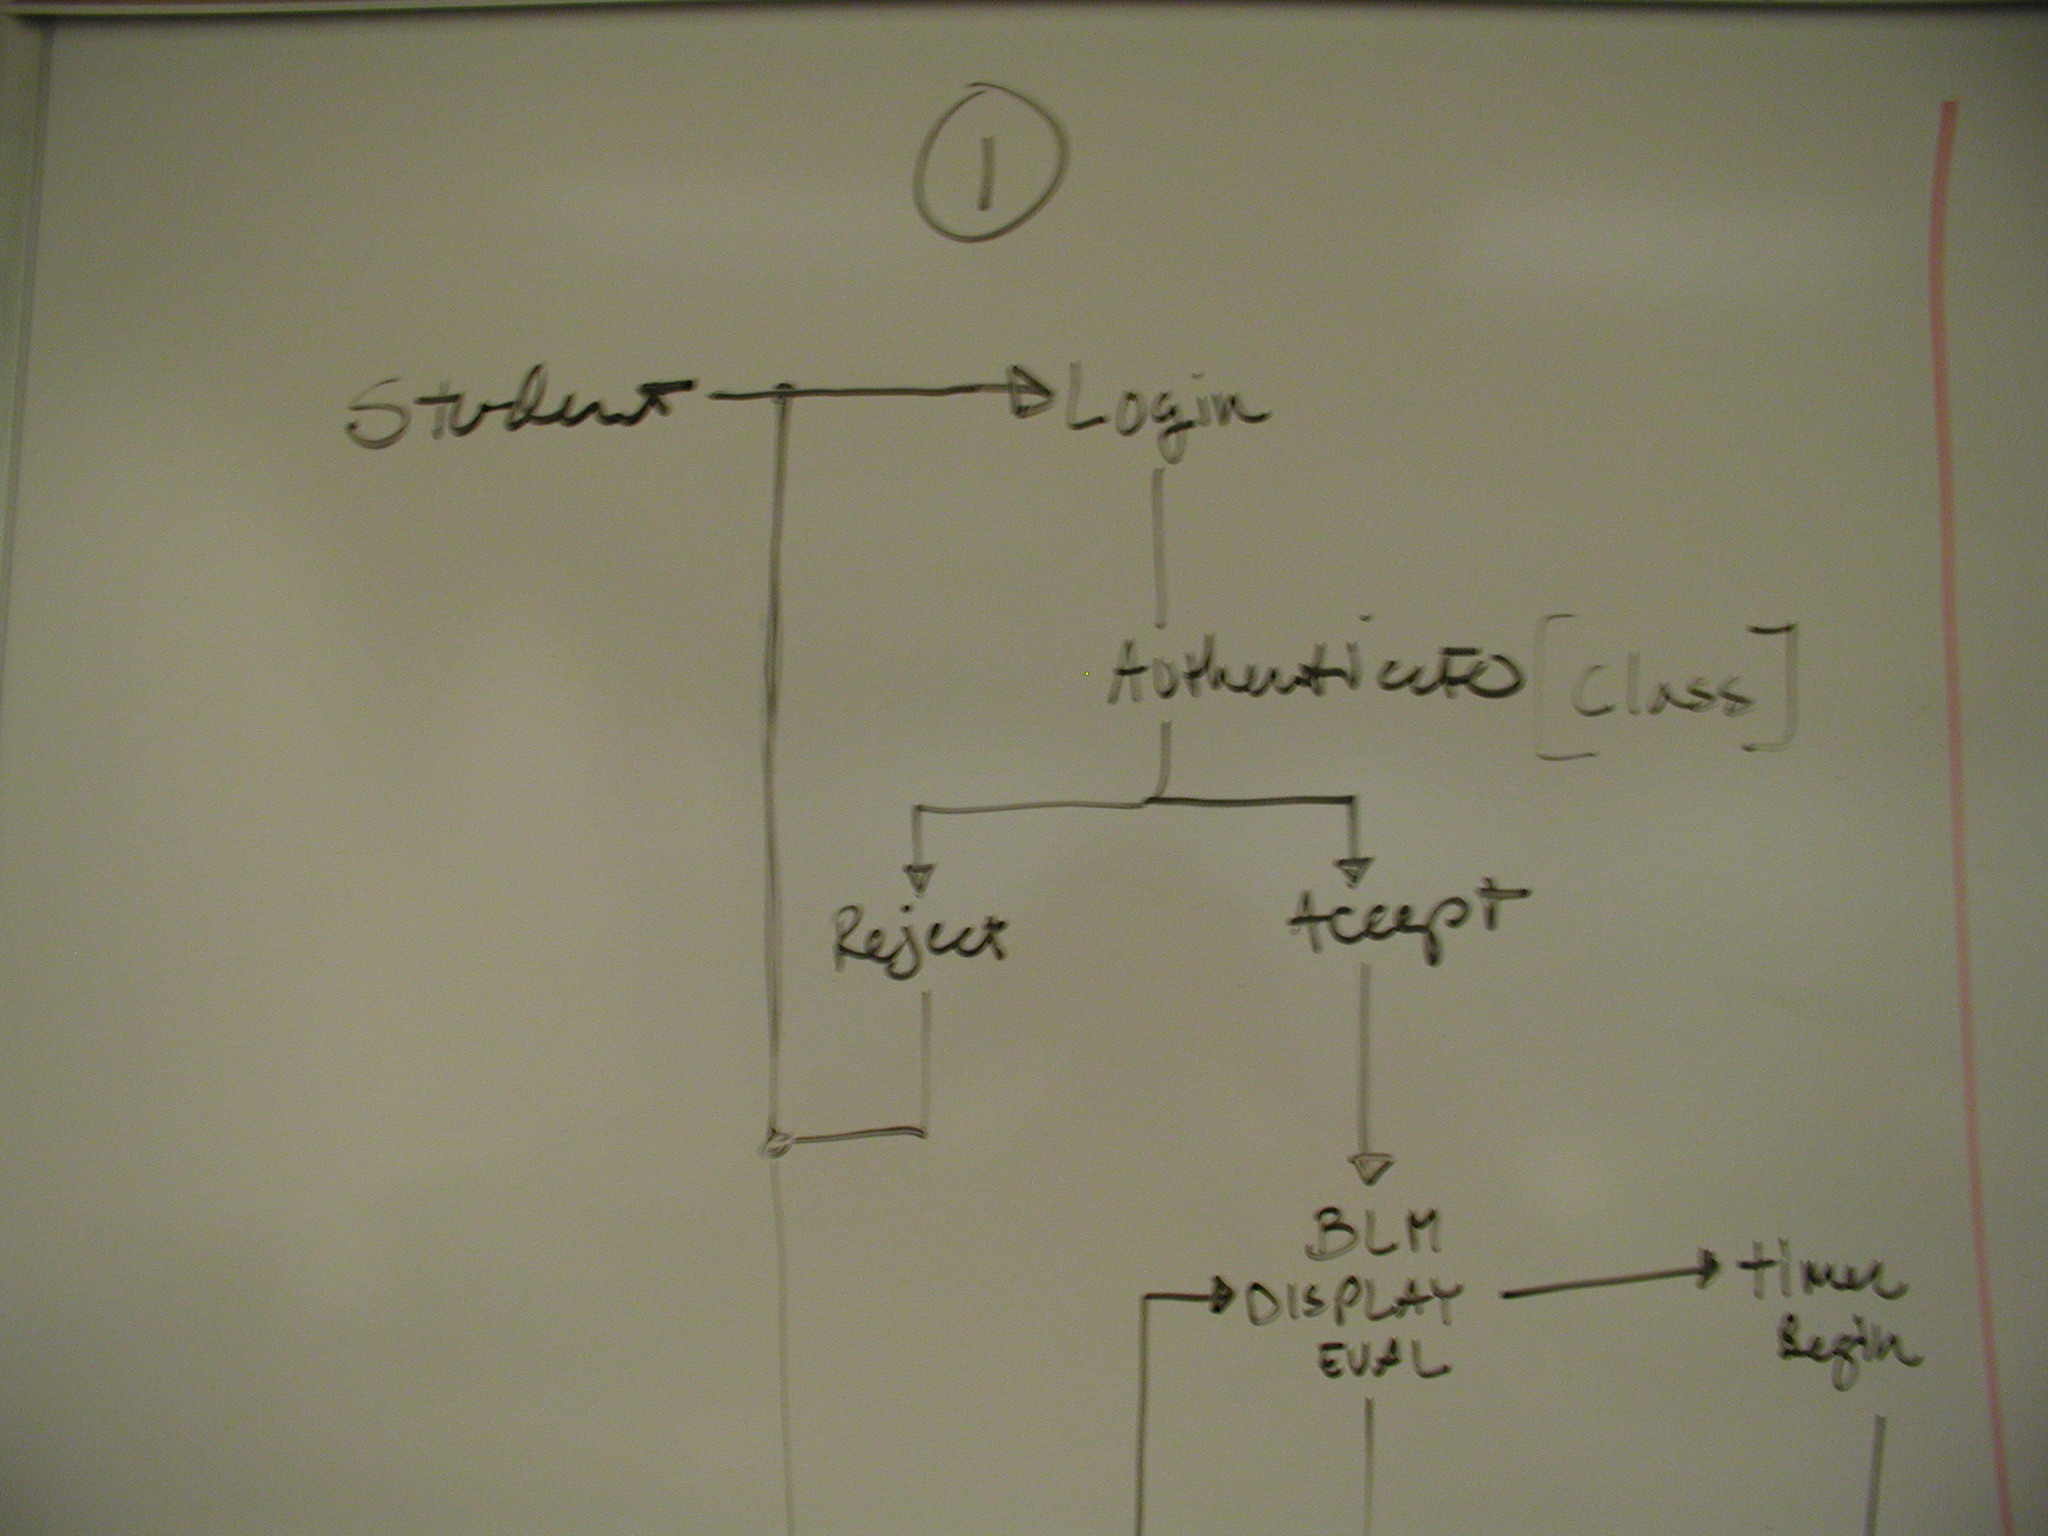 1
Student Login
Authenticate [Class]
Reject Accept
BLM
DISPLAY
EVAL
timer
Begin